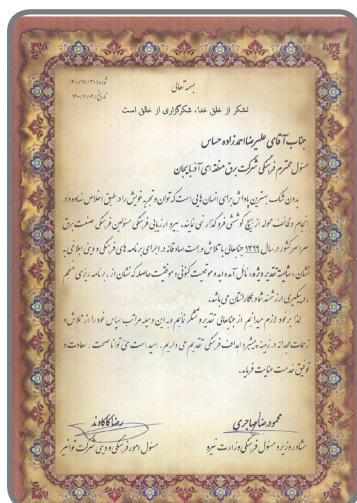 بسمه تعالی
تشکر از خلق خدا، شکرگزاری از خالق است
جناب آقای علیرضا احمدزاده حساس
مسئول محترم فرهنگی شرکت برق منطقه ای آذربایجان
بدون شک بهترین پاداش برای انسان هایی است که توان و تجربه خویش را در طبق اخلاص نهاده و در
انجام وظائف محوله از هیچ کوششی فروگذاری نمی نمایند. سیره ارزیابی فرهنگی مسئولین فرهنگی صنعت برق
سراسر کشور در سال ۱۳۹۹ جنابعالی با تلاش و همت صادقانه در اجرای برنامه های فرهنگی و دینی ابلاغی به
نشان «شایسته تقدیر ویژه» نائل آمده اید و موفقیت کنونی؛ موفقیت حاصله که نشان از برنامه ریزی منسجم
و پیگیری ارزشمند شما و همکارانتان می باشد.
لذا بر خود لازم میدانیم از جنابعالی تقدیر و تشکر نمائیم و بدین وسیله مراتب سپاس خود را از تلاش و
زحمات مجدانه در زمینه پیشبرد اهداف فرهنگی تقدیم می داریم. امید است حق توانا صحت، سعادت و
توفیق خدمت عنایت فرماید.
محمودرضا مهاجری
مشاور وزیر و مسئول فرهنگی وزارت نیرو
رضا کاکاوند
مسئول امور فرهنگی و دینی شرکت توانیر